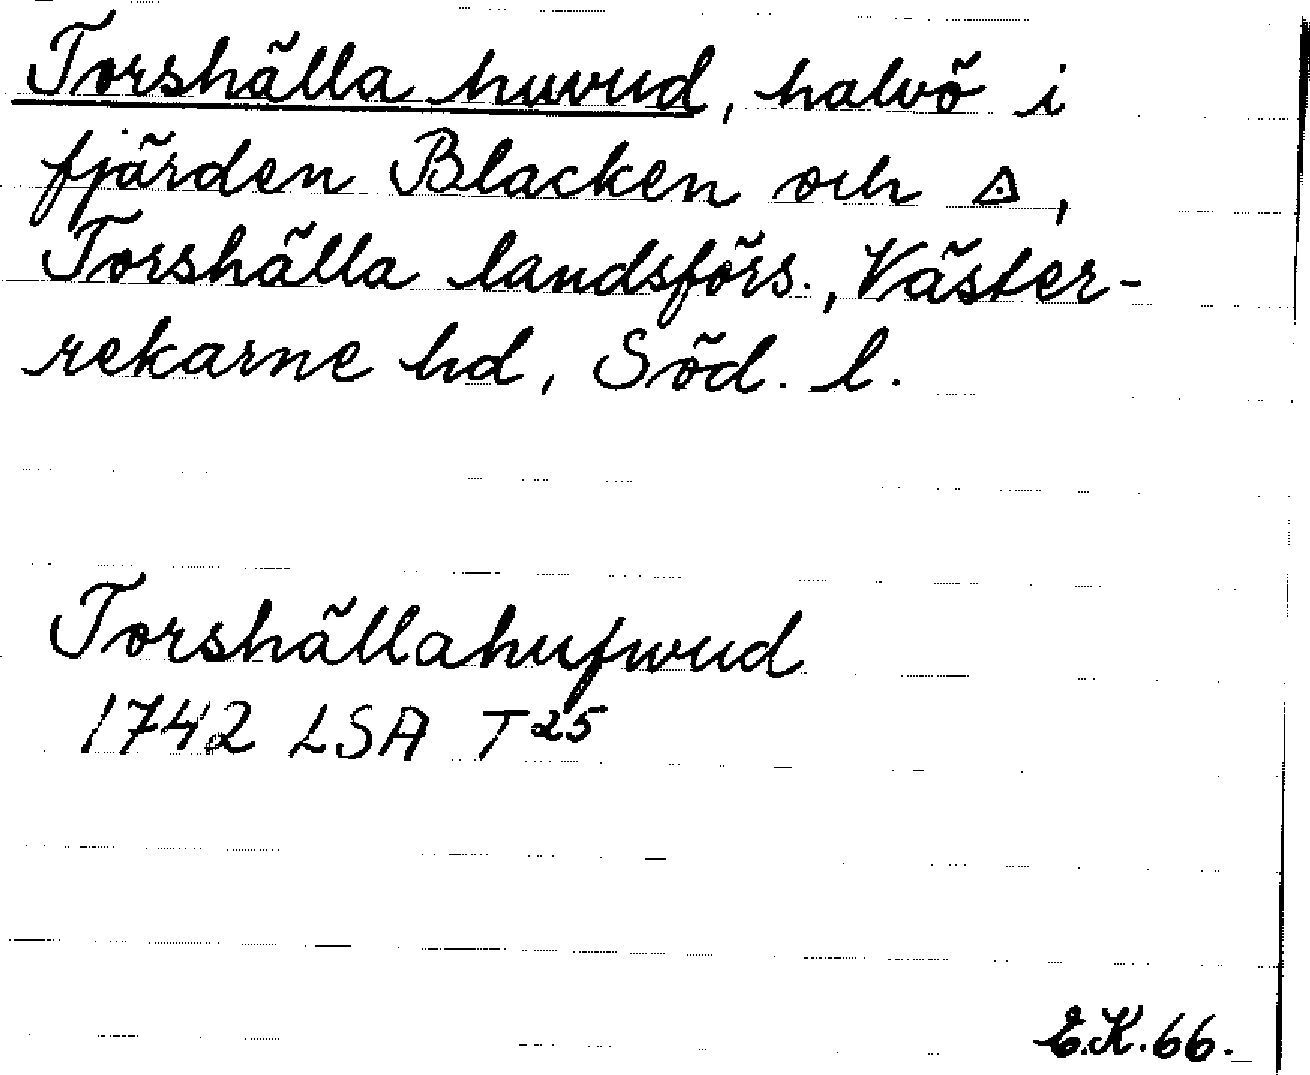 Torshälla huvud, halvö i
fjärden Blacken och ◬,
Torshälla landsförs., Väster-
rekarne hd, Söd. l.
Torshällahufwud
1742 LSA T25
E.K.66.